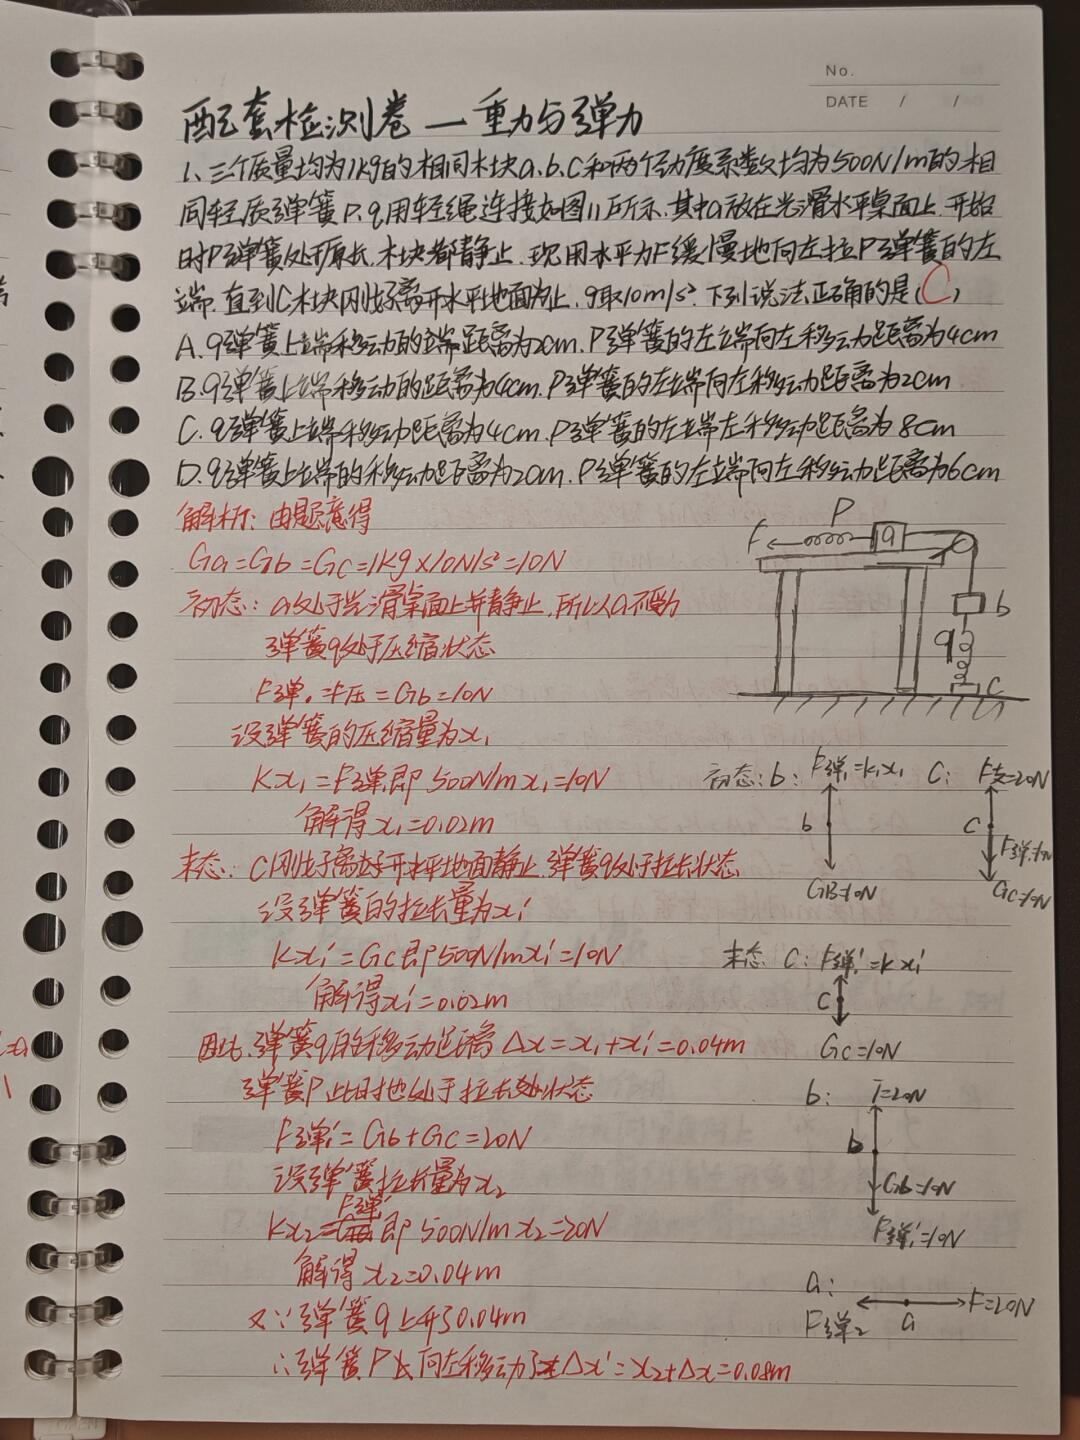 No.
DATE / /
配套检测卷 — 重力与弹力
1、三个质量均为1kg的相同木块a.b.c和两个劲度系数均为500N/m的相
同轻质弹簧P.q用轻绳连接如图11所示.其中a放在光滑水平桌面上.开始
时P弹簧处于原长.木块都静止.现用水平力F缓慢地向左拉P弹簧的左
端.直到C木块刚好离开水平地面为止.g取10m/s².下列说法正确的是(C)
A.q弹簧上端移动的端距离为2cm.P弹簧的左端向左移动距离为4cm
B.q弹簧上端移动的距离为4cm.P弹簧的左端向左移动距离为2cm
C.q弹簧上端移动距离为4cm.P弹簧的左端左移动距离为8cm
D.q弹簧上端的移动距离为2cm.P弹簧的左端向左移动距离为6cm
解析:由题意得
Ga=Gb=Gc=1kg×10N/s²=10N
初态:a处于光滑桌面上并静止.所以a不受力
弹簧q处于压缩状态
F弹.=F压=Gb=10N
设弹簧的压缩量为x₁
Kx₁=F弹,即500N/mx₁=10N
解得x₁=0.02m
末态:C刚好离开水平地面静止.弹簧q处于拉长状态
设弹簧的拉长量为x₁'
Kx₁'=Gc即500N/mx₁'=10N
解得x₁'=0.02m
因此.弹簧q的移动距离Δx=x₁+x₁'=0.04m
弹簧P此时也处于拉长状态
F弹'=Gb+Gc=20N
设弹簧拉长量为x₂
Kx₂=F弹'即500N/mx₂=20N
解得x₂=0.04m
又∵弹簧q上升0.04m
∴弹簧P向左移动了Δx'=x₂+Δx=0.08m
P
F
a
b
q
C
初态:b: F弹₁=k₁x₁
b
GB=10N
C: F支=20N
C
F弹.=10N
Gc=10N
末态 C: F弹₁'=kx₁'
C
Gc=10N
b: T=20N
b
Gb=10N
F弹₁'=10N
a:
F弹₂
a
F=20N